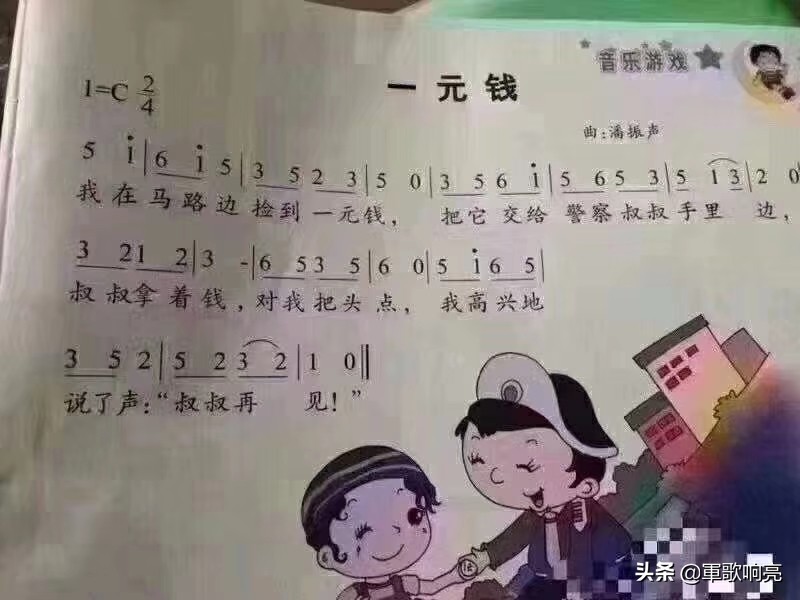 音乐游戏
1=C 2/4
一元钱
曲:潘振声
5 i|6 i 5|3 5 2 3|5 0|3 5 6 i|5 6 5 3|5 1 3|2 0
我在马路边捡到一元钱， 把它交给警察叔叔手里边，
3 2 1 2|3 -|6 5 3 5|6 0|5 i 6 5|
叔叔拿着钱，对我把头点， 我高兴地
3 5 2|5 2 3 2|1 0‖
说了声：“叔叔再 见！”
头条 @軍歌响亮